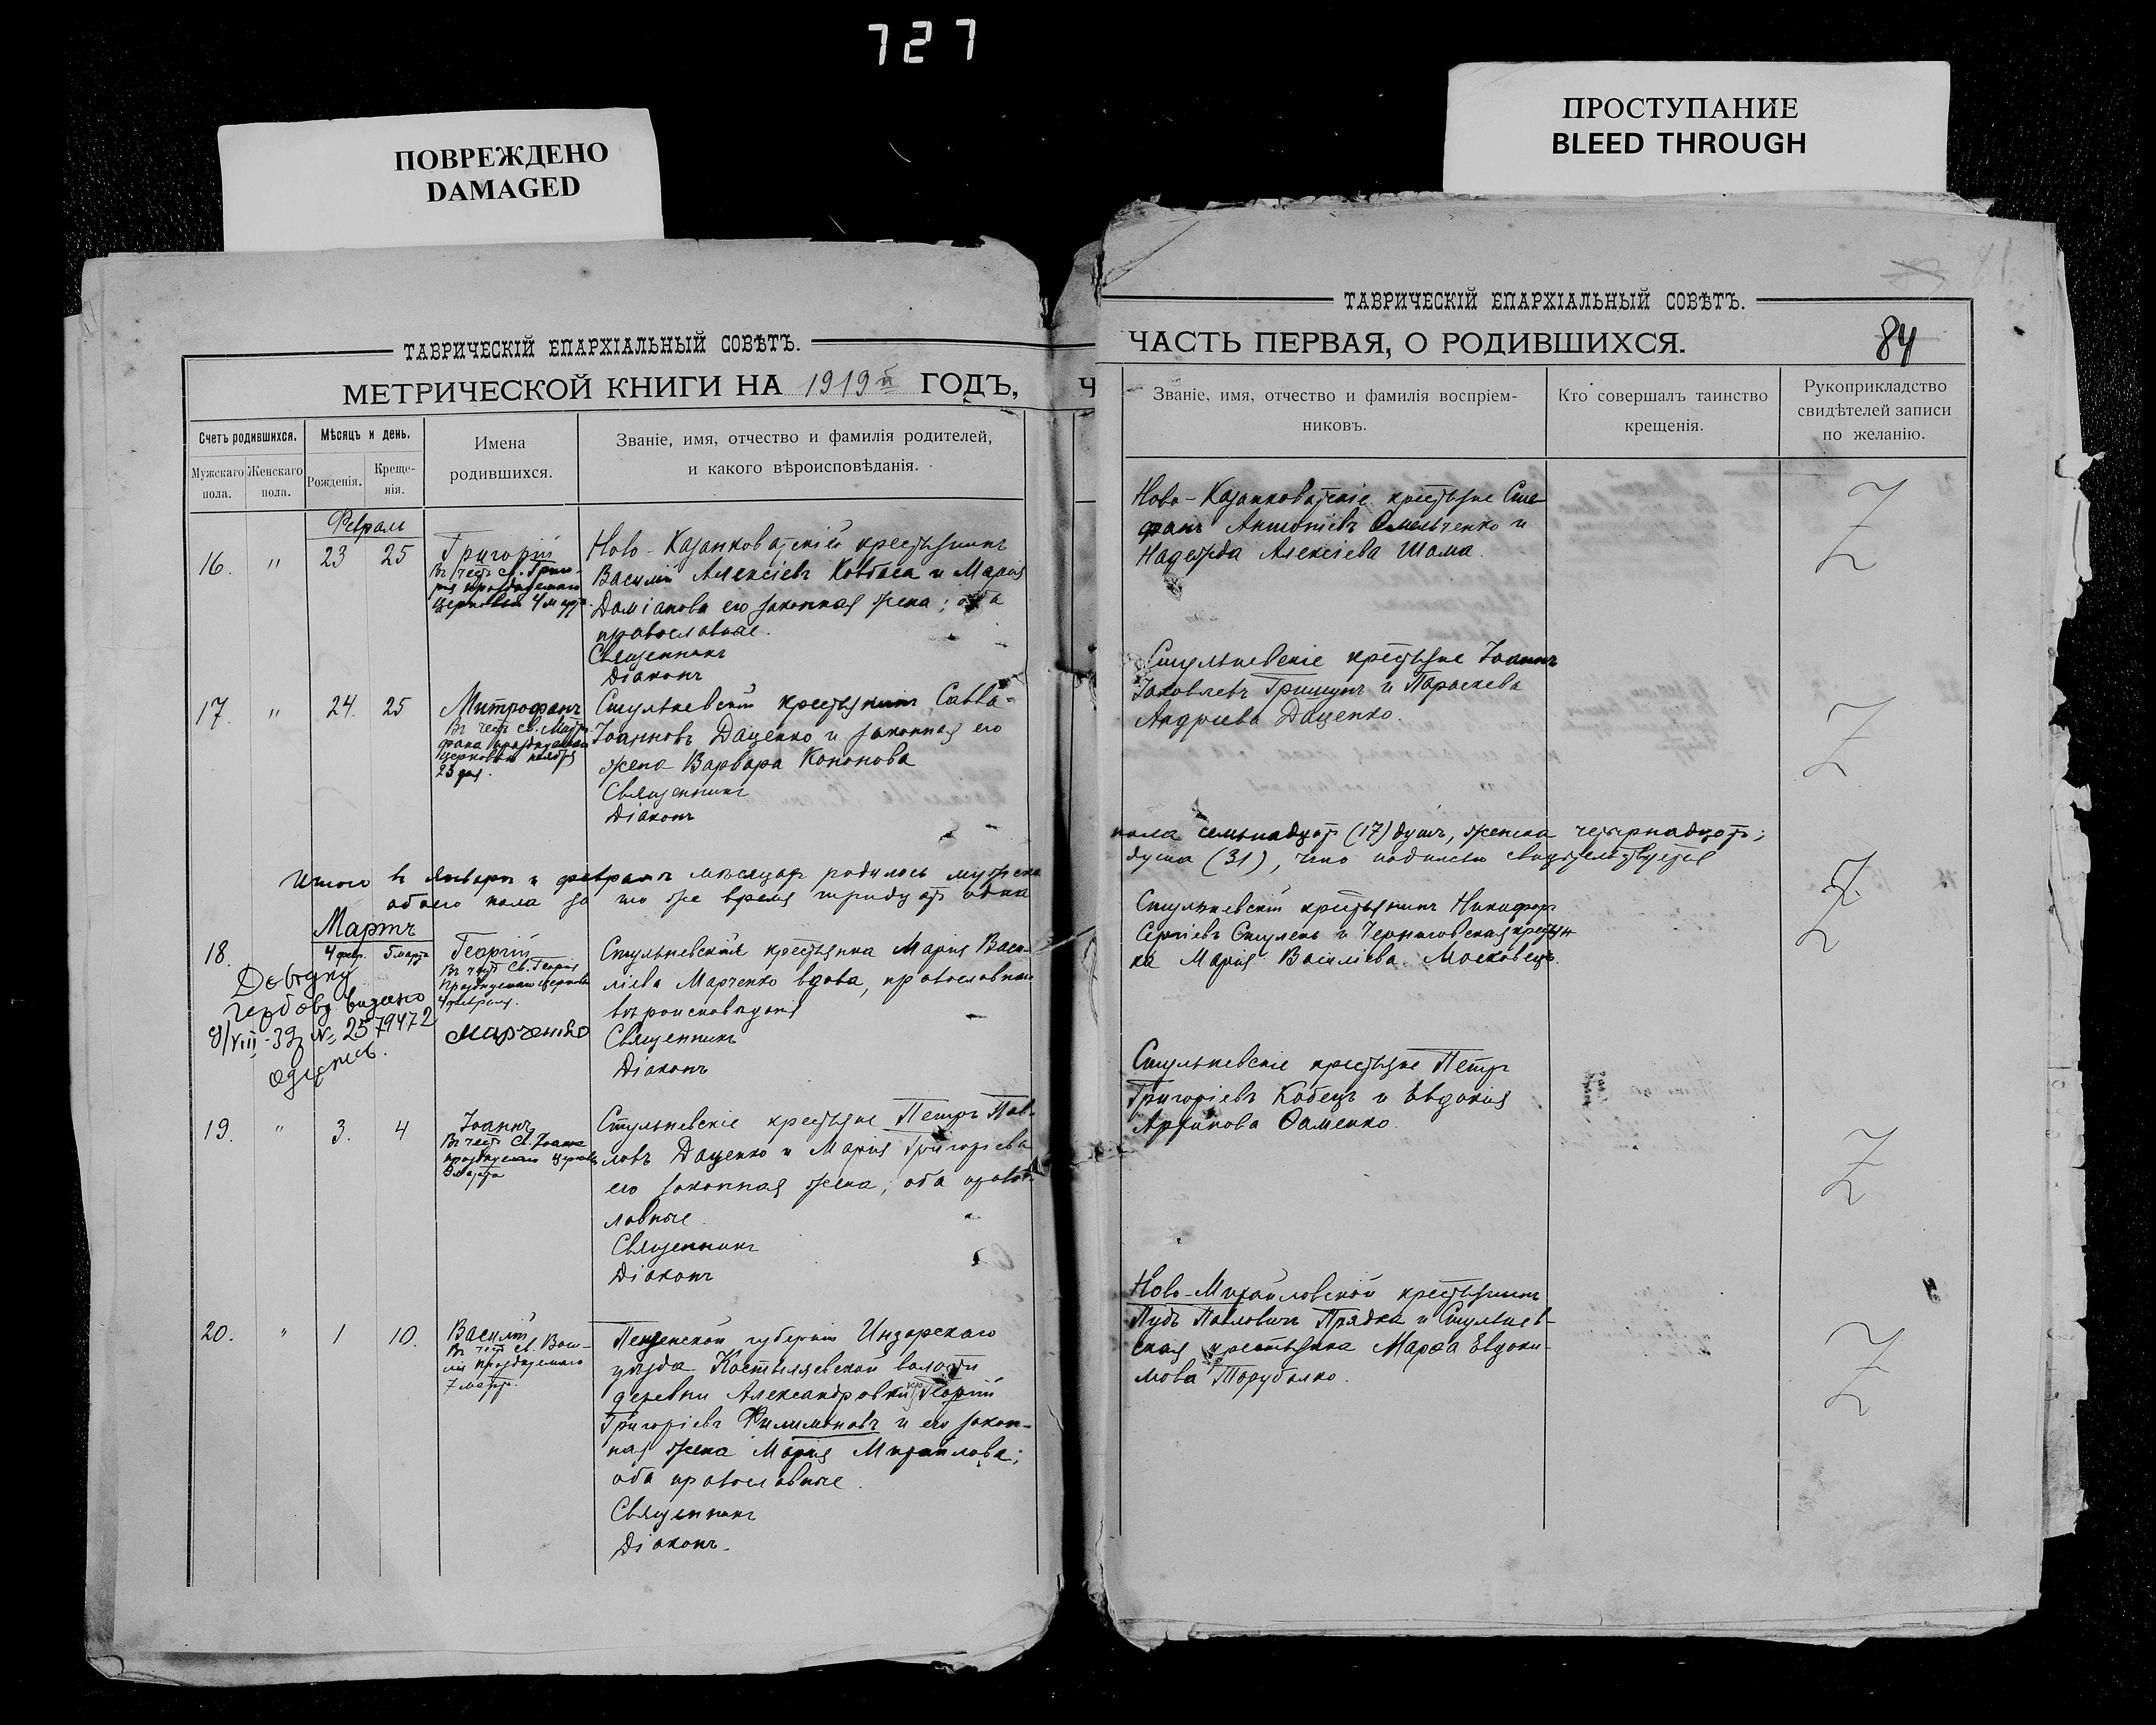 727
ПОВРЕЖДЕНО
DAMAGED
ПРОСТУПАНИЕ
BLEED THROUGH
ТАВРИЧЕСКІЙ ЕПАРХІАЛЬНЫЙ СОВѢТЪ.
МЕТРИЧЕСКОЙ КНИГИ НА 1919й ГОДЪ,
Счетъ родившихся.
Мужскаго пола.
Женскаго пола.
Мѣсяцъ и день.
Рожденія.
Креще-
нія.
Имена
родившихся.
Званіе, имя, отчество и фамилія родителей,
и какого вѣроисповѣданія.
Февраль
16. " 23 25
Григорій
Въ честь св. Григо-
рія празднуемаго
церковью 4 марта.
Ново-Казанковатскій крестьянинъ
Василій Алексіевъ Ковбаса и Марія
Даміанова его законная жена; оба
православные.
Священникъ
Діаконъ
17. " 24. 25
Митрофанъ
Въ честь св. Митро-
фана празднуемаго
церковью ноября
23 дня.
Стульневскій крестьянинъ Савва
Іоанновъ Даценко и законная его
жена Варвара Кононова
Священникъ
Діаконъ
Итого въ январѣ и февралѣ мѣсяцах родилось мужска
обоего пола за то же время тридцать одна
Мартъ
18. 4 февр. 5 марта
Георгій
Въ честь св. Георгія
празднуемаго церковью
4 февраля.
Марченко
Стульневская крестьянка Марія Васи-
ліева Марченко вдова, православнаго
вѣроисповѣданія
Священникъ
Діаконъ
Довідку
видано
8/VIII-39 № 2579472
19. " 3. 4
Іоаннъ
Въ честь св. Іоанна
празднуемаго церковью
марта
Стульневскіе крестьяне Петръ Пав-
ловъ Даценко и Марія Григоріева
его законная жена; оба правос-
лавные.
Священникъ
Діаконъ
20. " 1 10.
Василій
Въ честь св. Васи-
лія празднуемаго
7 марта.
Пензенской губерніи Инзарскаго
уѣзда Костыляевской волости
деревни Александровки кр. Георгій
Григоріевъ Филимоновъ и его закон-
ная жена Марія Михайлова;
оба православные.
Священникъ
Діаконъ.
ТАВРИЧЕСКІЙ ЕПАРХІАЛЬНЫЙ СОВѢТЪ.
ЧАСТЬ ПЕРВАЯ, О РОДИВШИХСЯ.
84
Званіе, имя, отчество и фамилія воспріем-
никовъ.
Кто совершалъ таинство
крещенія.
Рукоприкладство
свидѣтелей записи
по желанію.
Ново-Казанковатскіе крестьяне Сте-
фанъ Антоніевъ Омельченко и
Надежда Алексіева Шама.
Стульневскіе крестьяне Іоаннъ
Іаковлевъ Грищунъ и Параскева
Андреева Даценко.
пола семьнадцать (17) душъ, женска четырнадцать;
душа (31), что подписью свидѣтельствуется
Стульневскій крестьянинъ Никифоръ
Сергіевъ Стулень и Черниговская крестьян
ка Марія Василіева Московецъ.
Стульневскіе крестьяне Петръ
Григоріевъ Кобецъ и Евдокія
Архипова Фаменко.
Ново-Михайловской крестьянинъ
Пудъ Павловичъ Прядка и Стульнев-
ская крестьянка Марѳа Евдоки-
мова Торубалко.